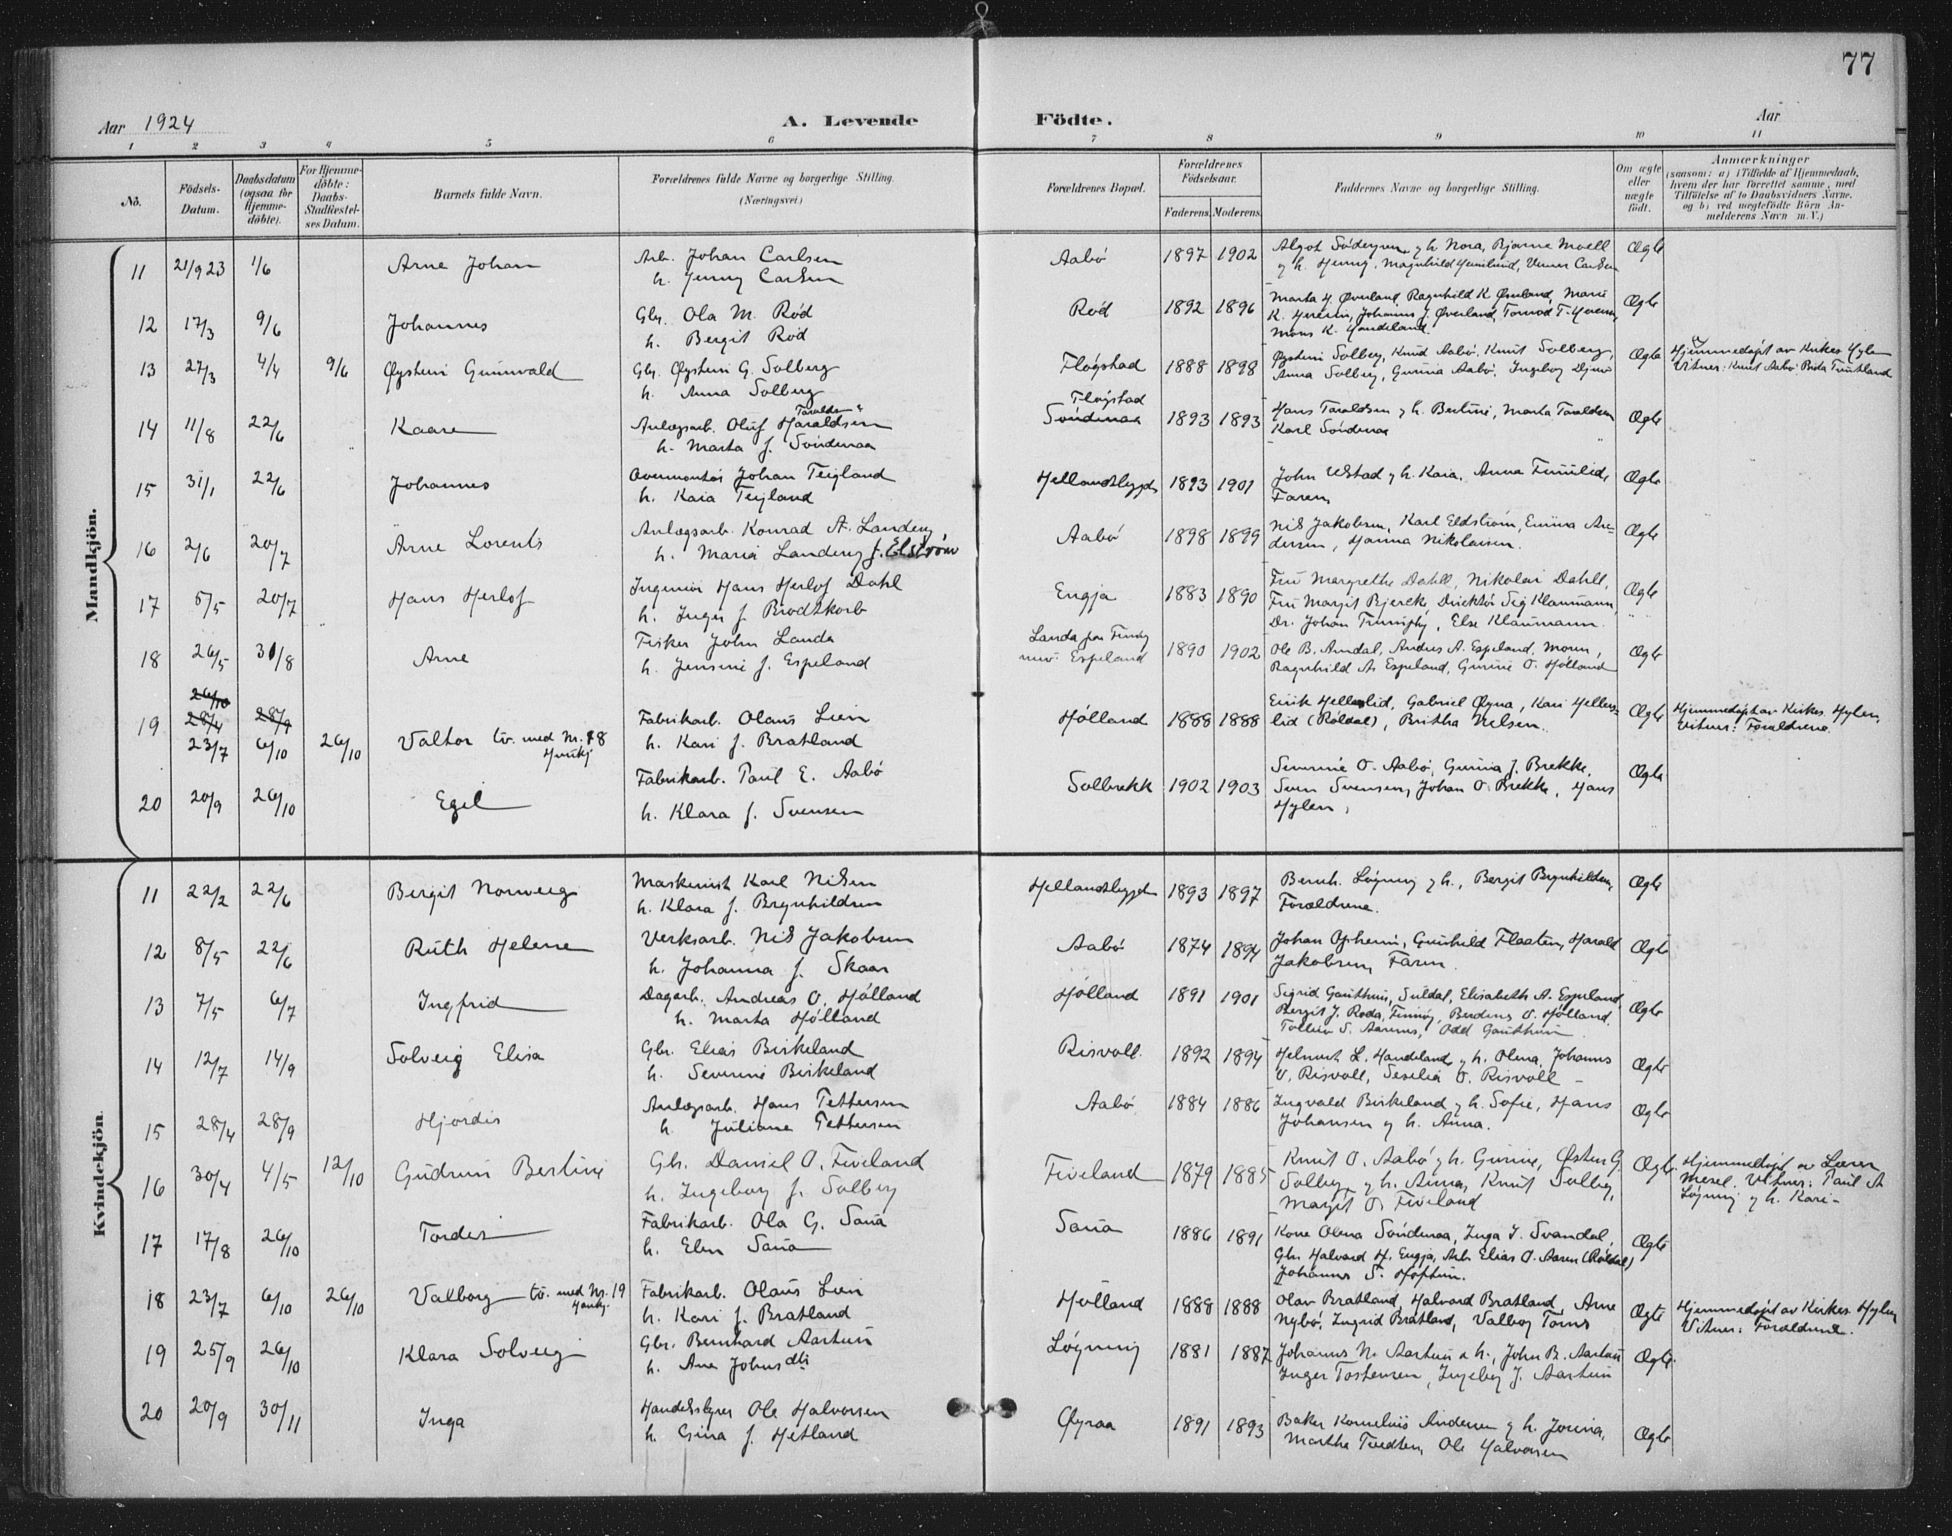 77
Aar 1924 A. Levende Födte. Aar
1 2 3 4 5 6 7 8 9 10 11
No. Födsels-Datum. Daabsdatum (ogsaa for Hjemmedöbte). For Hjemmedöbte: Daabs-Stadfæstelses Datum. Barnets fulde Navn. Forældrenes fulde Navne og borgerlige Stilling. (Næringsvei) Forældrenes Bopæl. Forældrenes Födselsaar. Faderens. Moderens. Faddernes Navne og borgerlige Stilling. Om ægte eller uægte födt. Anmærkninger (saasom: a) i Tilfælde af Hjemmedaab, hvem der har forrettet samme, med Tilföielse af to Daabsvidners Navne, og b) ved uægtefödte Börn Anmelderens Navn m. V.)
Mandkjön.
11 21/9 23 1/6 Arne Johan Arb. Johan Carlsen Aabö 1897 1902 Algot Södergren og h. Nora, Bjarne Moell Ægte
h. Jenny Carlsen og h. Henny, Magnhild
12 17/3 9/6 Johannes Gbr. Ola M. Röd Röd 1892 1896 Marta H. Øverland, Ragnhild K. Øverland, Marie Ægte
h. Bergit Röd K. Johannes J. Øverland, Tormod T.
Mons K. Handeland.
13 27/3 4/4 9/6 Øystein Gunnvald Gbr. Øystein G. Solberg Fløgstad 1888 1898 Øystein Solberg, Knud Aabö, Knut Solberg, Ægte Hjemmedøpt av Kirkes. Hylen
h. Anna Solberg Anna Solberg, Gurina Aabö, Ingeborg Vitner: Knut Aabö
14 11/8 22/6 Kaare Anlægsarb. Oluf Haraldsen Taraldsen Fløgstad Söndenaa 1893 1893 Hans Taraldsen og h. Bertine, Marta Taraldsen Ægte
h. Marta f. Söndenaa Karl Söndenaa
15 31/1 22/6 Johannes Overmontör Johan Teigland Hellandsbygd 1893 1901 John Ulstad og h. Kaia, Anna Ægte
h. Kaia Teigland Faren
16 2/6 20/7 Arne Lorents Anlægsarb. Konrad A. Landeng Aabö 1898 1899 Nils Jakobsen, Karl Eldström, Emma An- Ægte
h. Maria Landeng f. Elström dersen, Hanna Nikolaisen.
17 5/5 20/7 Hans Herlof Ingeniör Hans Herlof Dahl Engja 1883 1890 Fru Margrethe Dahll, Nikolai Dahll, Ægte
h. Inger f. Brodtkorb Fru Margit Bjercke, Direktör Sig Klaumann,
Dr. Johan Else Klaumann.
18 26/5 31/8 Arne Fisker John Landa Landa pr. Finnöy 1890 1902 Ole B. Aandal, Anders A. Espeland, Moren, Ægte
h. Jensine f. Espeland Espeland Ragnhild A. Espeland, Gurine O. Hölland
26/10
28/4 28/9
19 23/7 6/10 26/10 Valtor tv. med Nr. 18 Fabrikarb. Olaus Lien Hölland 1888 1888 Eirik Hellerslid, Gabriel Øyna, Kari Hellers- Ægte Hjemmedøpt av Kirkes. Hylen,
Kvinkj h. Kari f. Bratland lid (Röldal), Britha Nilsen. Vitner: Foreldrene.
20 20/9 26/10 Egil Fabrikarb. Paul E. Aabö Solbrekk 1902 1903 Severine O. Aabö, Gurina J. Brekke, Ægte
h. Klara f. Svensen Sven Svensen, Johan O. Brekke, Hans
Hylen,
Kvindekjön
11 22/2 22/6 Bergit Norveig Maskinist Karl Nilsen Hellandsbygd 1893 1897 Bernh. Löyning og h., Bergit Brynhildsen, Ægte
h. Klara f. Brynhildsen Forældrene.
12 8/5 22/6 Ruth Helene Verksarb. Nils Jakobsen Aabö 1874 1894 Johan Opheim, Gunhild Flaaten, Harald Ægte
h. Johanna f. Skaar Jakobsen, Faren.
13 7/5 6/7 Ingfrid Dagarb. Andreas O. Hölland Hölland 1891 1901 Sigrid Gauthun, Suldal, Elisabeth A. Espeland, Ægte
h. Marta Hölland Bergit J. Roda, Finnöy, O. Hölland.
Odd Gauthun
14 12/7 14/9 Solveig Elisa Gbr. Elias Birkeland Risvoll. 1892 1894 Helmert L. Handeland og h. Olena, Johannes Ægte
h. Severine Birkeland O. Risvoll, Seselia O. Risvoll
15 28/4 28/9 Hjördis Anlægsarb. Hans Pettersen Aabö 1884 1886 Ingvald Birkeland og h. Sofie, Hans Ægte
h. Juliane Pettersen Johansen og h. Anna.
16 30/4 4/5 12/10 Gudrun Bertine Gbr. Daniel O. Fiveland Fiveland 1879 1885 Knut O. Aabö og h. Gurine, Østen G. Ægte Hjemmedøpt av Lærer
h. Ingeborg f. Solberg Solberg og h. Anna, Knut Solberg, Mesel. Vitner: Paul A
Margit O. Fiveland Löyning og h. Kari
17 17/8 26/10 Tordis Fabrikarb. Ola G. Saua Saua 1886 1891 Kone Olena Söndenaa, Inga I. Svandal, Ægte
h. Elen Saua Gbr. Halvard H. Engja, Arb. Elias O. Aaren (Röldal)
Johannes S. Hoftun.
18 23/7 6/10 26/10 Valborg tv. med Nr. 19 Fabrikarb. Olaus Lien Hölland 1888 1888 Olav Bratland, Halvard Bratland, Arne Ægte Hjemmedøpt av Kirkes. Hylen
h. Kari f. Bratland Nybö, Ingrid Bratland, Valborg Vitner: Forældrene.
19 25/9 26/10 Klara Solveig Gbr. Bernhard Aartun Löyning 1881 1887 Johannes N. Aartun & h., John B. Aartun Ægte
h. Ane Johnsdtr Inger Tostensen, Ingeborg J. Aartun
20 20/9 30/11 Inga Handelsstyrer Ole Halvorsen Øyraa 1891 1893 Baker Kornelius Andersen og h. Jorina, Ægte
h. Gina f. Hetland Martha Tvedten, Ole Halvorsen